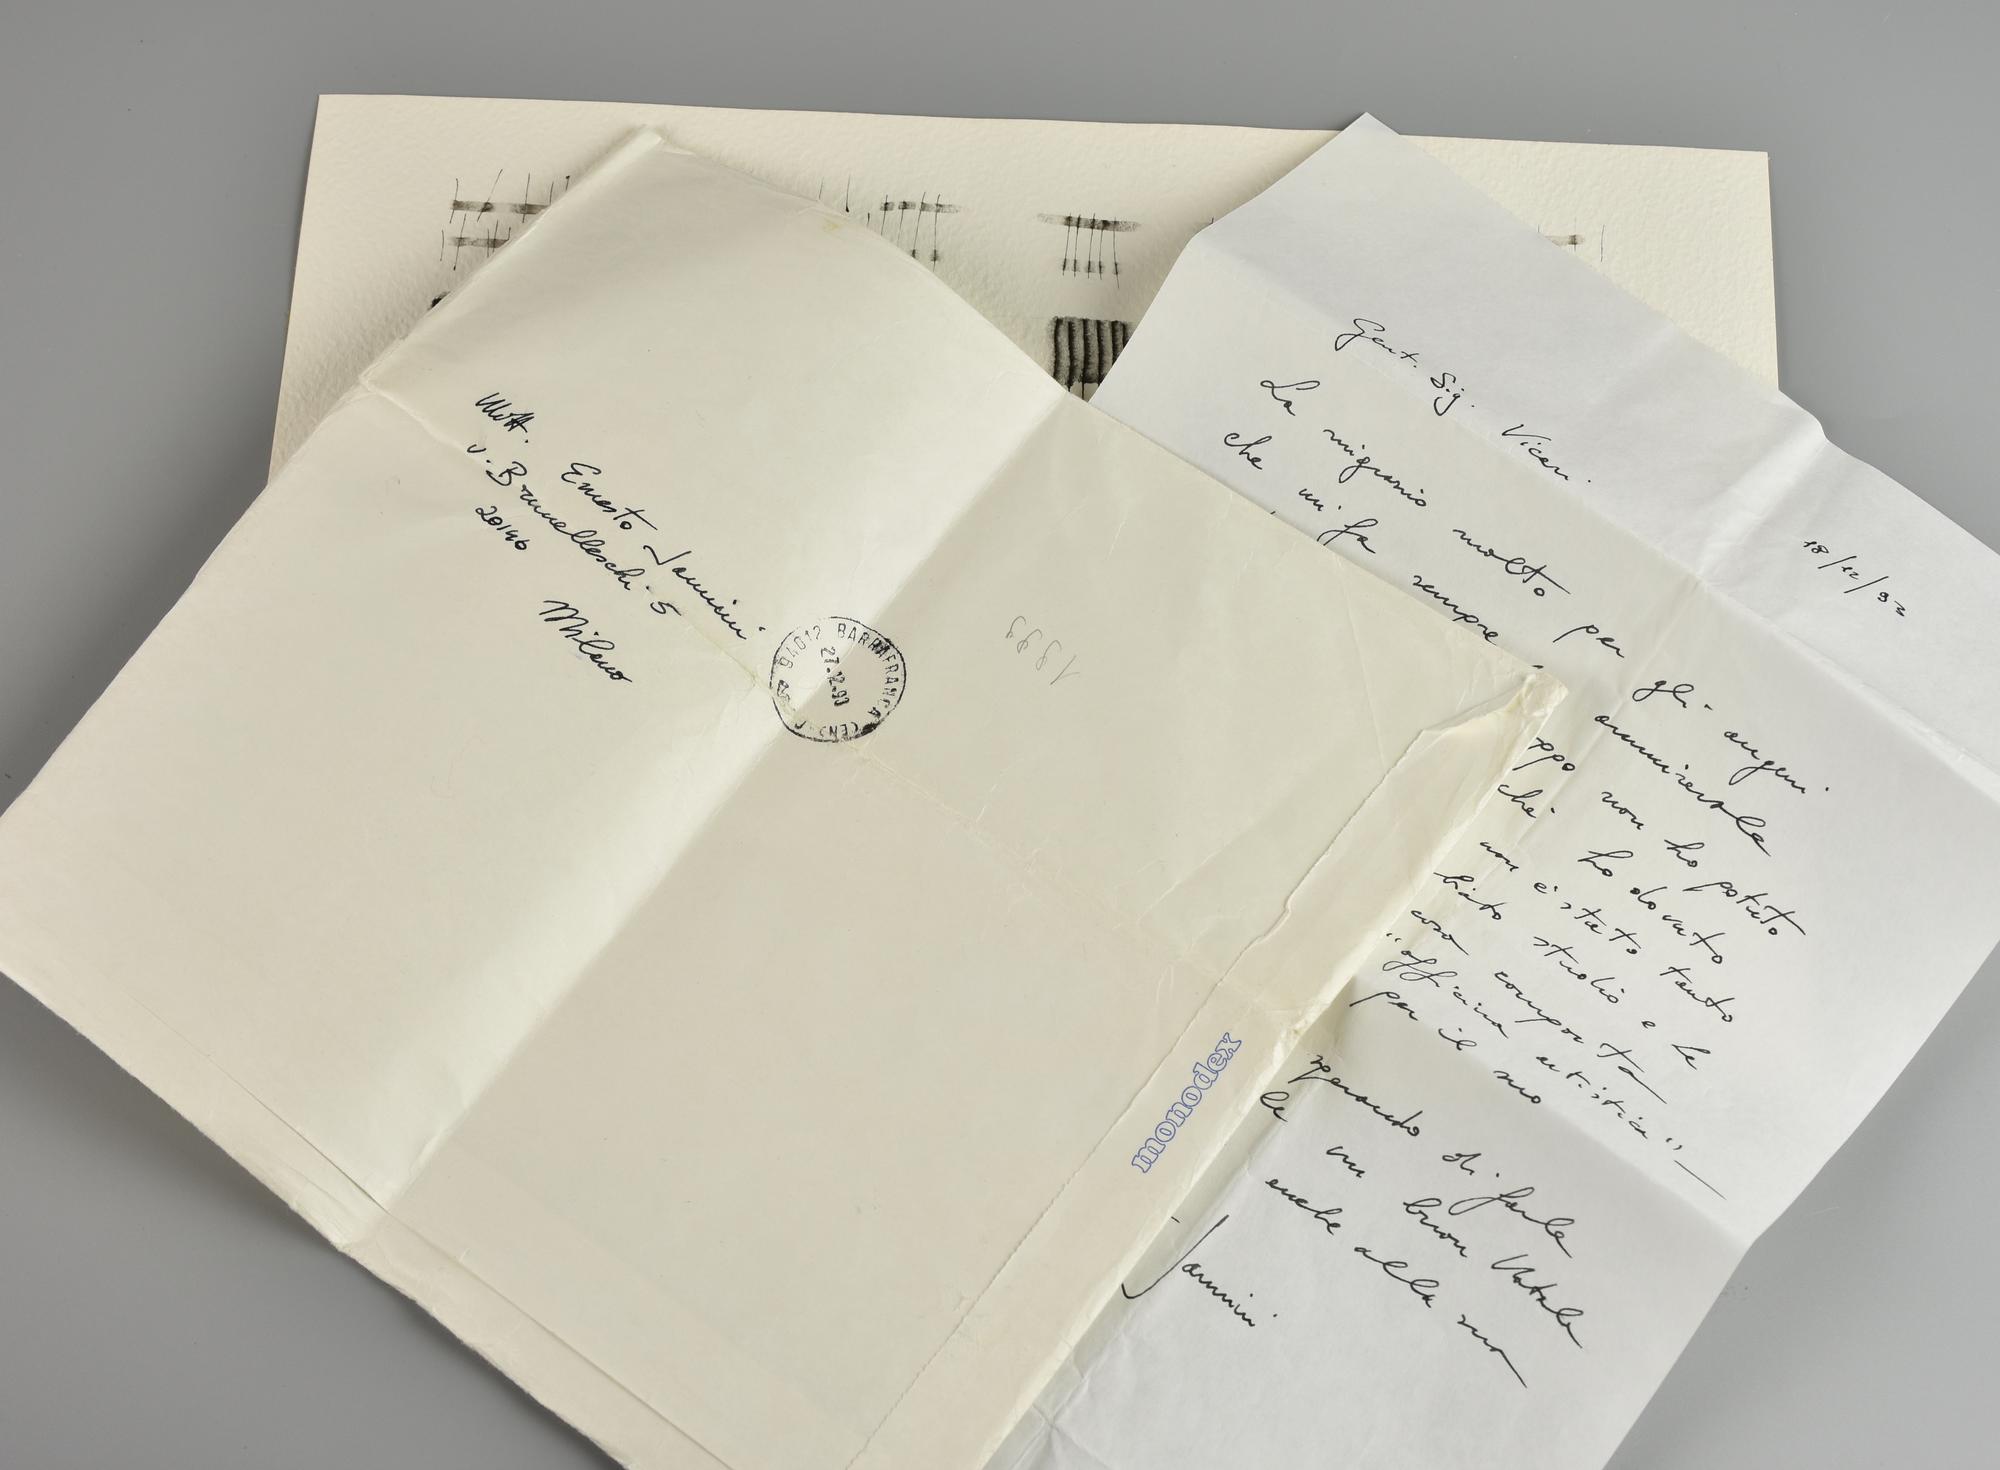 Mitt.
Ernesto Jannini
v. Brunelleschi. 5
20146
Milano
94012 BARRAFRANCA
27.12.93
1999
monodex
18/12/93
Gent. Sig. Viceri.
La ringrazio molto per gli auguri
che mi fa sempre
ppo non ho potuto
che ho dovuto
non è stato tanto
studio e le
cosa comporta
"officina artistica"
per il suo
sperando di farle
le un buon Natale
anche alla sua
Jannini